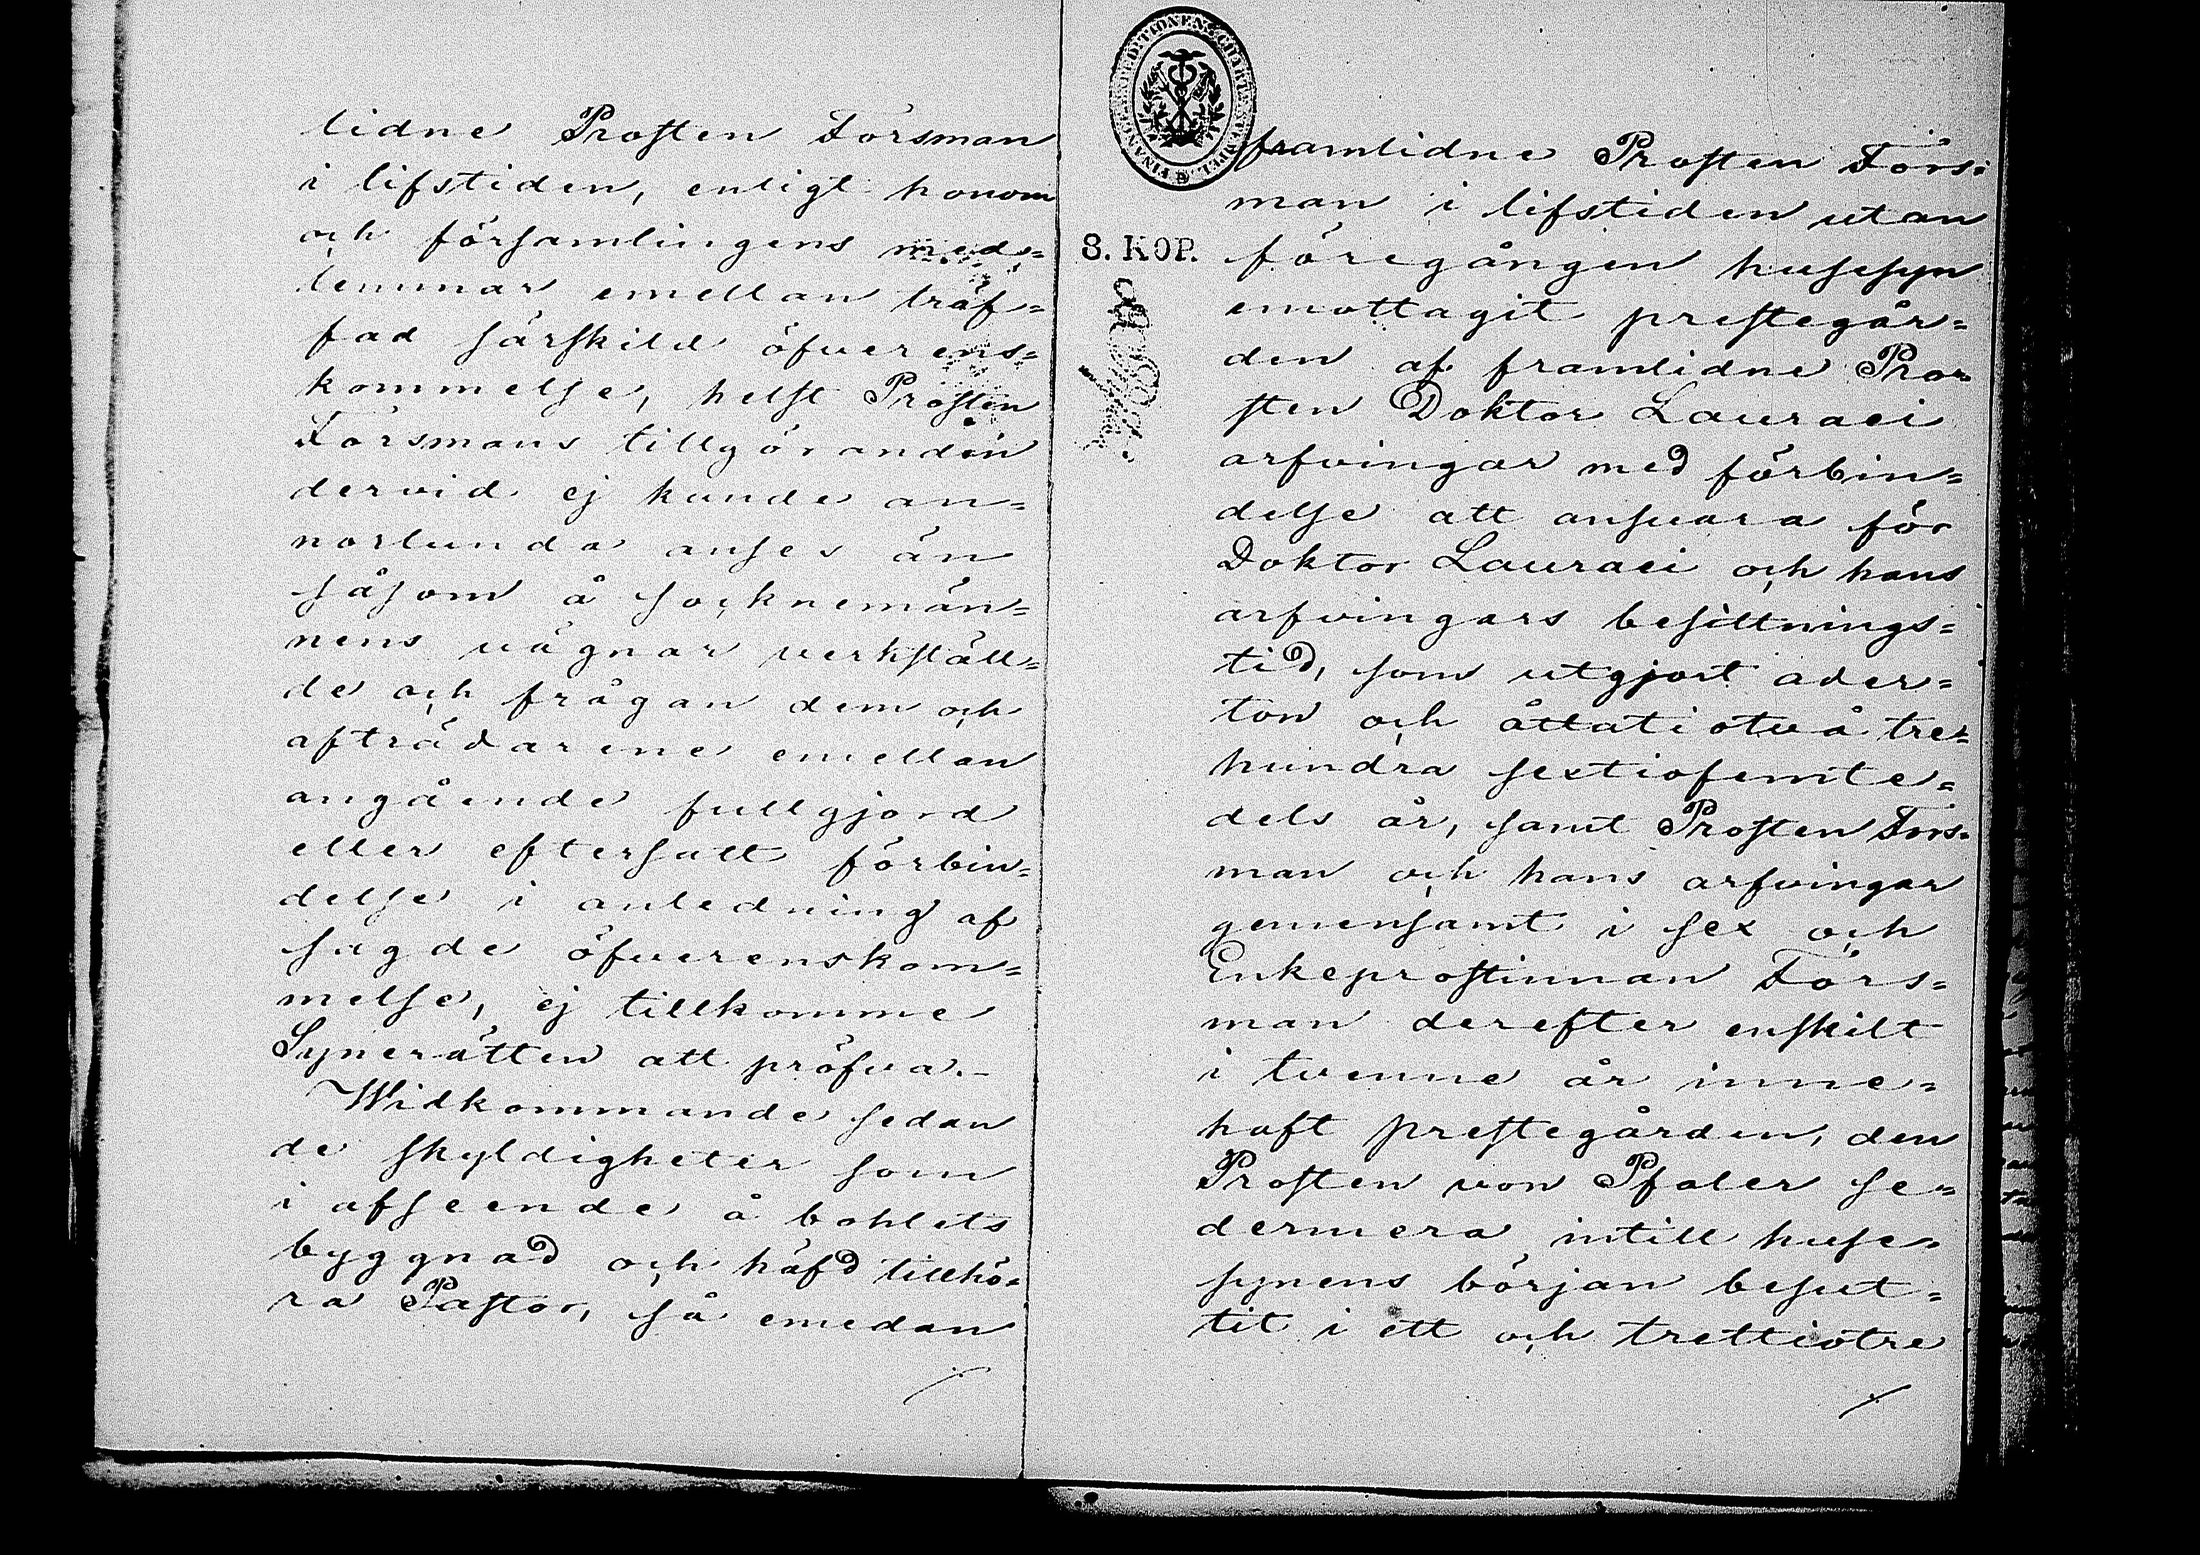 lidne Prosten Forsman
i lifstiden, enligt honom
och församlingens med-
lemmar emellan träf-
fad särskild öfverens-
kommelse, helst Prosten
Forsmans tillgöranden
dervid ej kunde an-
norlunda anses än
såsom å socknemän-
nens vägnar verkställ-
de och frågan dem och
afträdarene emellan
angående fullgjord
eller eftersatt förbin-
delse i anledning af
sagde öfverenskom-
melse, ej tillkomme
Synerätten att pröfva.-
Widkommande sedan
de skyldigheter som
i afseende å bohlets
byggnad och häfd tillhö-
ra Pastor, så emedan
FINANCE EXPEDITIONENS CHARTÆ STEMPEL
8. KOP.
framlidne Prosten Fors-
man i lifstiden utan
föregången husesyn
emottagit prestegår-
den af framlidne Pro-
sten Doktor Lauraei
arfvingar med förbin-
delse att ansvara för
Doktor Lauraei och hans
arfvingars besittnings-
tid, som utgjort ader-
ton och åttatiotvå tre-
hundra sextiofemte-
dels år, samt Prosten Fors-
man och hans arfvingar
gemensamt i sex och
Enkeprostinnan Fors-
man derefter enskilt
i tvenne år inne-
haft prestegården, den
Prosten von Pfaler se-
dermera intill huse-
synens början besut-
tit i ett och trettiotre